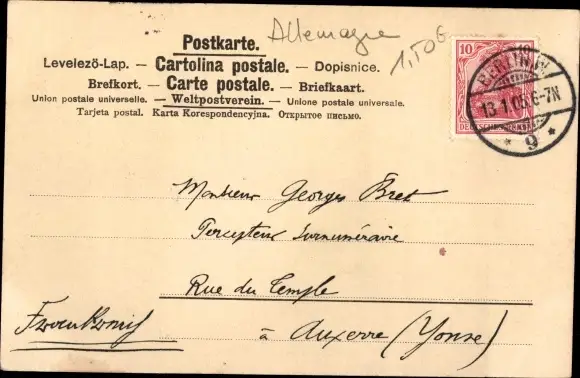 Allemagne
1,50€
Postkarte.
Levelező-Lap. — Cartolina postale. — Dopisnice.
Brefkort. — Carte postale. — Briefkaart.
Union postale universelle. — Weltpostverein. — Unione postale universale.
Tarjeta postal. Karta Korespondencyjna. Открытое письмо.
10
BERLIN W.
13.1.05.6-7N
* 9 *
Monsieur Georges Bret
Percepteur Surnuméraire
Rue du Temple
à Auxerre (Yonne)